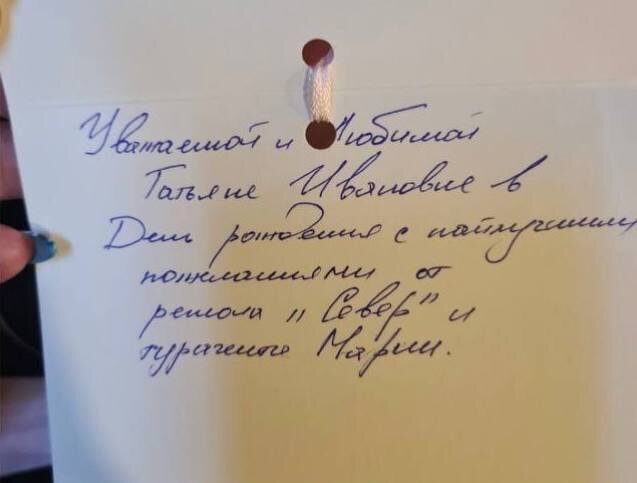 Уважаемой и Любимой
Татьяне Ивановне в
День рождения с наилучшими
пожеланиями от
"Север" и
Марии.